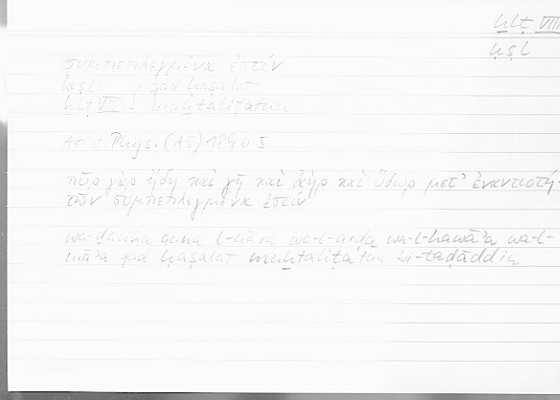 ḫlṭ VIII
ḥṣl
συμπεπλεγμένα ἐστίν
ḥṣl: qad ḥaṣalat
ḫlṭ VIII: muḫtaliṭatan
Arist. Phys. (A5) 189 b 5
πῦρ γὰρ ἤδη καὶ γῆ καὶ ἀὴρ καὶ ὕδωρ μετ' ἐναντιοτή-
των συμπεπλεγμένα ἐστίν
wa-ḏālika anna l-nāra wa-l-arḍa wa-l-hawāʾa wa-l-
māʾa qad ḥaṣalat muḫtaliṭatan bi-taḍāddin